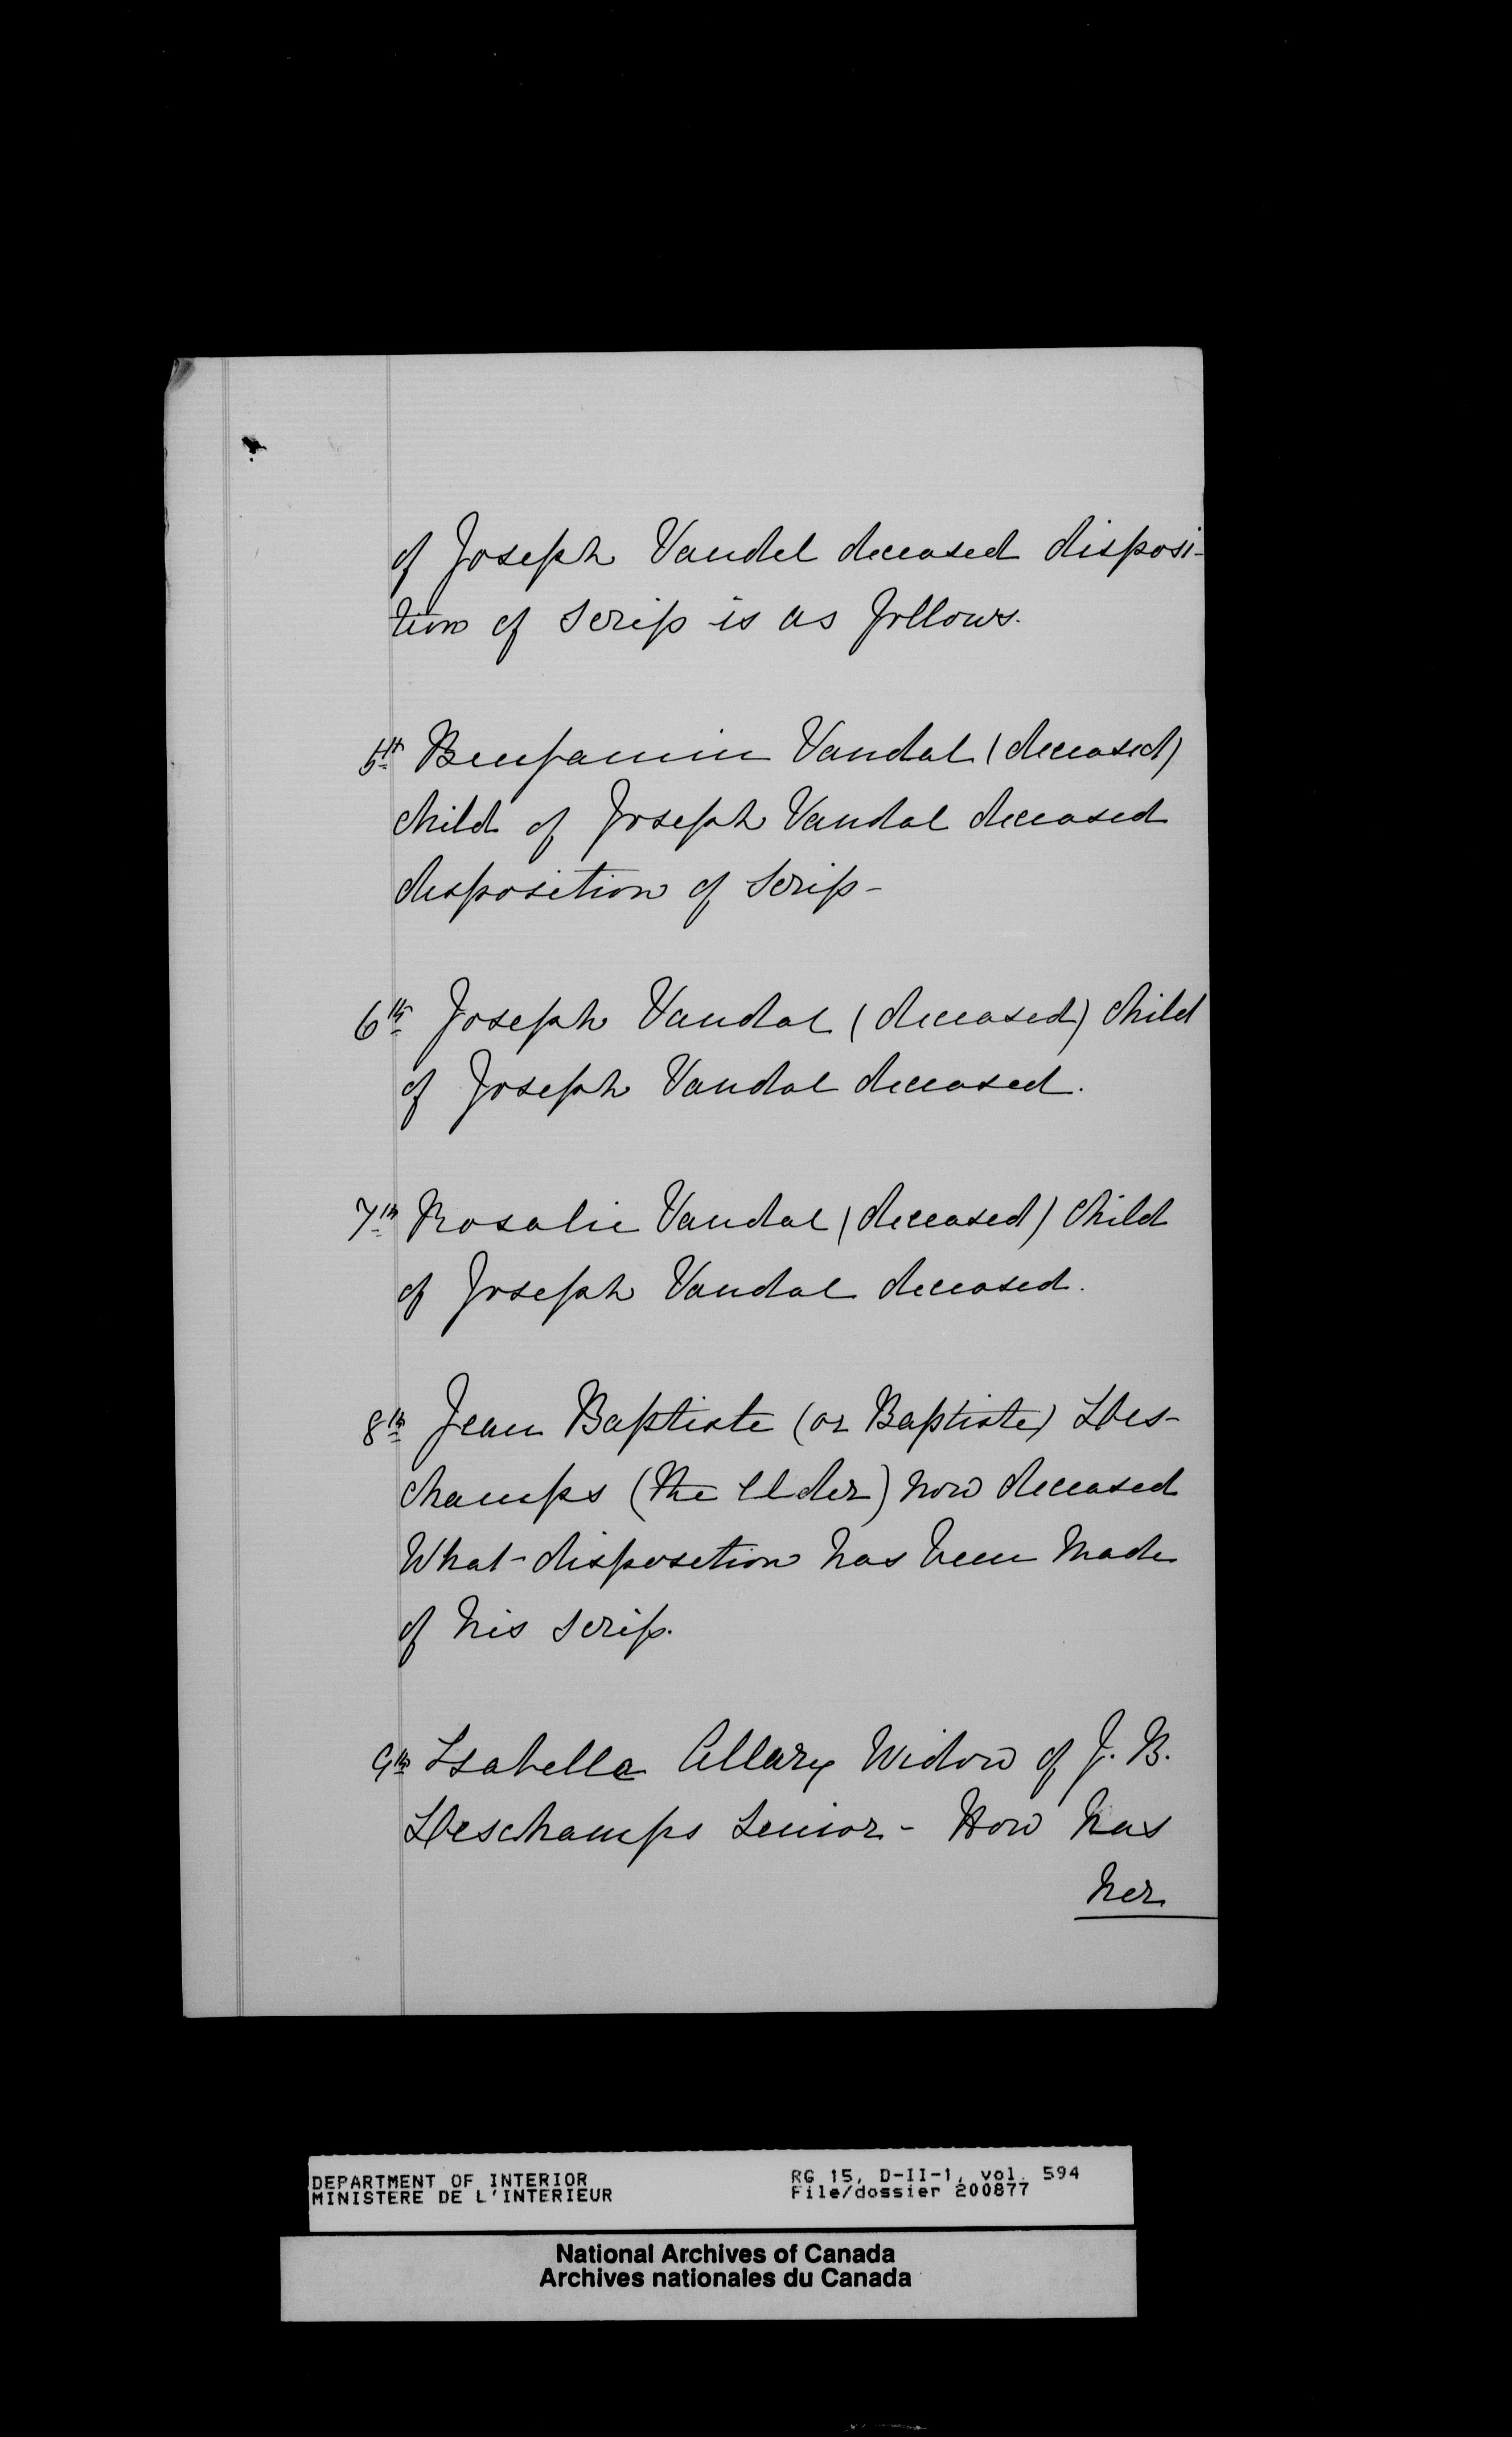 of Joseph Vandel deceased disposi-
tion of Scrip is as follows.
5th Benjamin Vandal (deceased)
child of Joseph Vandal deceased
disposition of Scrip -
6th Joseph Vandal (deceased) child
of Joseph Vandal deceased.
7th Rosalie Vandal (deceased) child
of Joseph Vandal deceased.
8th Jean Baptiste (or Baptiste) Des-
champs (the Elder) now deceased
What disposition has been made
of his scrip.
9th Isabella Allary Widow of J. B.
Deschamps Senior - How has
her
DEPARTMENT OF INTERIOR
MINISTERE DE L'INTERIEUR
RG 15, D-II-1, vol. 594
File/dossier 200877
National Archives of Canada
Archives nationales du Canada